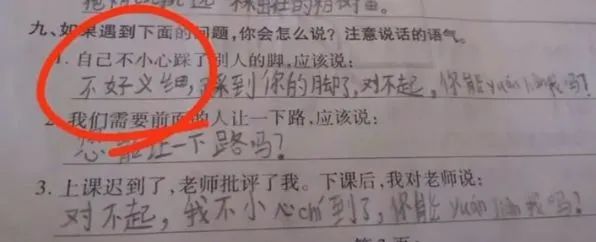 九、如果遇到下面的问题,你会怎么说? 注意说话的语气。
1. 自己不小心踩了别人的脚,应该说:
不好义细,踩到你的脚了,对不起,你能yuán liàn我吗?
2. 我们需要前面的人让一下路,应该说:
您能让一下路吗?
3. 上课迟到了,老师批评了我。下课后,我对老师说:
对不起,我不小心chí到了,你能yuán liàn我吗?